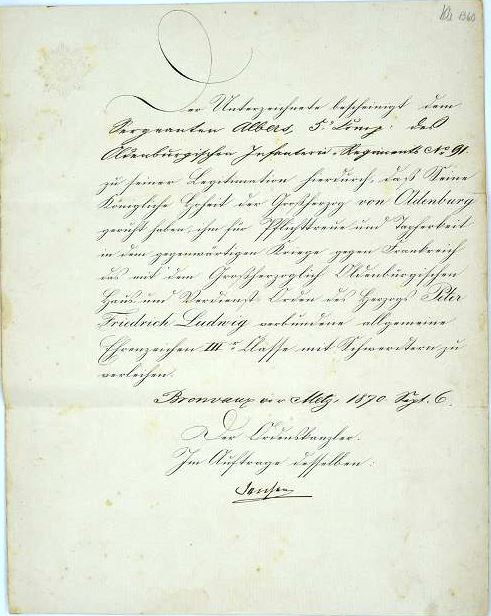 1360
Der Unterzeichnete bescheinigt dem
Sergeanten Albers, 5. Comp. des
Oldenburgischen Infanterie-Regiments No 91.
zu seiner Legitimation hierdurch, daß Seine
Königliche Hoheit der Großherzog von Oldenburg
geruht haben, ihm für Pflichttreue und Tapferkeit
in dem gegenwärtigen Kriege gegen Frankreich
das mit dem Großherzoglich Oldenburgischen
Haus und Verdienst Orden des Herzogs Peter
Friedrich Ludwig verbundene allgemeine
Ehrenzeichen III r Classe mit Schwertern zu
verleihen.
Bronvaux vor Metz, 1870 Sept. 6.
Der Ordenskanzler.
Im Auftrage desselben:
Jansen